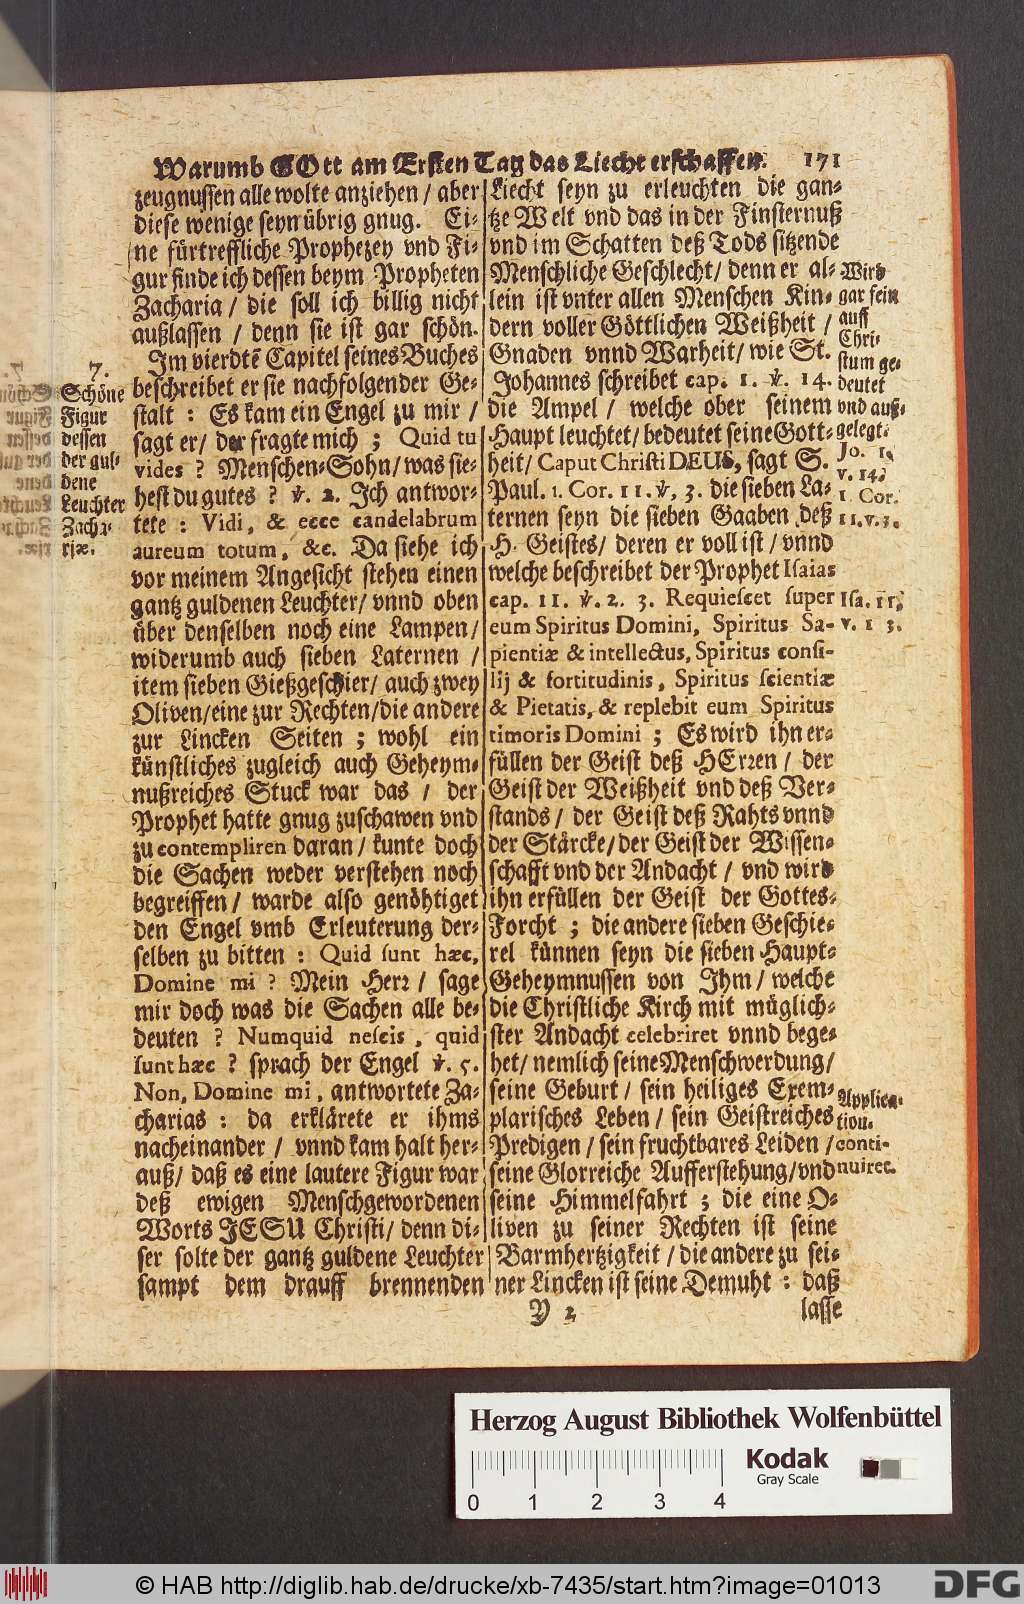 Warumb GOtt am Ersten Tag das Liecht erschaffen. 171
zeugnussen alle wolte anziehen / aber
diese wenige seyn übrig gnug. Ei-
ne fürtreffliche Prophezey vnd Fi-
gur finde ich dessen beym Propheten
Zacharia / die soll ich billig nicht
außlassen / denn sie ist gar schön.
Im vierdtē Capitel seines Buches
beschreibet er sie nachfolgender Ge-
stalt : Es kam ein Engel zu mir /
sagt er / der fragte mich ; Quid tu
vides ? Menschen-Sohn / was sie-
hest du gutes ? v. 2. Ich antwor-
tete : Vidi, & ecce candelabrum
aureum totum, &c. Da siehe ich
vor meinem Angesicht stehen einen
gantz guldenen Leuchter / vnnd oben
über denselben noch eine Lampen /
widerumb auch sieben Laternen /
item sieben Gießgeschier / auch zwey
Oliven / eine zur Rechten / die andere
zur Lincken Seiten ; wohl ein
künstliches zugleich auch Geheym-
nußreiches Stuck war das / der
Prophet hatte gnug zuschawen vnd
zu contempliren daran / kunte doch
die Sachen weder verstehen noch
begreiffen / warde also genöhtiget
den Engel vmb Erleuterung der-
selben zu bitten : Quid sunt hæc,
Domine mi ? Mein Herr / sage
mir doch was die Sachen alle be-
deuten ? Numquid nescis, quid
sunt hæc ? sprach der Engel v. 5.
Non, Domine mi, antwortete Za-
charias : da erklärete er ihms
nacheinander / vnnd kam halt her-
auß / daß es eine lautere Figur war
deß ewigen Menschgewordenen
Worts JESU Christi / denn di-
ser solte der gantz guldene Leuchter
sampt dem drauff brennenden
7.
Schöne
Figur
dessen
der gul-
dene
Leuchter
Zacha-
riæ.
Liecht seyn zu erleuchten die gan-
tze Welt vnd das in der Finsternuß
vnd im Schatten deß Tods sitzende
Menschliche Geschlecht / denn er al-
lein ist vnter allen Menschen Kin-
dern voller Göttlichen Weißheit /
Gnaden vnnd Warheit / wie St.
Johannes schreibet cap. 1. v. 14.
die Ampel / welche ober seinem
Haupt leuchtet / bedeutet seine Gott-
heit / Caput Christi DEUS, sagt S.
Paul. 1. Cor. 11. v. 3. die sieben La-
ternen seyn die sieben Gaaben deß
H. Geistes / deren er voll ist / vnnd
welche beschreibet der Prophet Isaias
cap. 11. v. 2. 3. Requiescet super
eum Spiritus Domini, Spiritus Sa-
pientiæ & intellectus, Spiritus consi-
lij & fortitudinis, Spiritus scientiæ
& Pietatis, & replebit eum Spiritus
timoris Domini ; Es wird ihn er-
füllen der Geist deß HErren / der
Geist der Weißheit vnd deß Ver-
stands / der Geist deß Rahts vnnd
der Stärcke / der Geist der Wissen-
schafft vnd der Andacht / vnd wird
ihn erfüllen der Geist der Gottes-
Forcht ; die andere sieben Geschie-
rel künnen seyn die sieben Haupt-
Geheymnussen von Ihm / welche
die Christliche Kirch mit müglich-
ster Andacht celebriret vnnd bege-
het / nemlich seine Menschwerdung /
seine Geburt / sein heiliges Exem-
plarisches Leben / sein Geistreiches
Predigen / sein fruchtbares Leiden /
seine Glorreiche Aufferstehung / vnd
seine Himmelfahrt ; die eine O-
liven zu seiner Rechten ist seine
Barmhertzigkeit / die andere zu sei-
ner Lincken ist seine Demuht : daß
Wird
gar fein
auff
Chri-
stum ge-
deutet
vnd auß-
gelegt.
Jo. 1.
v. 14.
1. Cor.
11. v. 3.
Isa. 11.
v. 1 3.
Applica-
tion.
conti-
nuiret.
Y 2
lasse
Herzog August Bibliothek Wolfenbüttel
Kodak
Gray Scale
0 1 2 3 4
© HAB http://diglib.hab.de/drucke/xb-7435/start.htm?image=01013
DFG